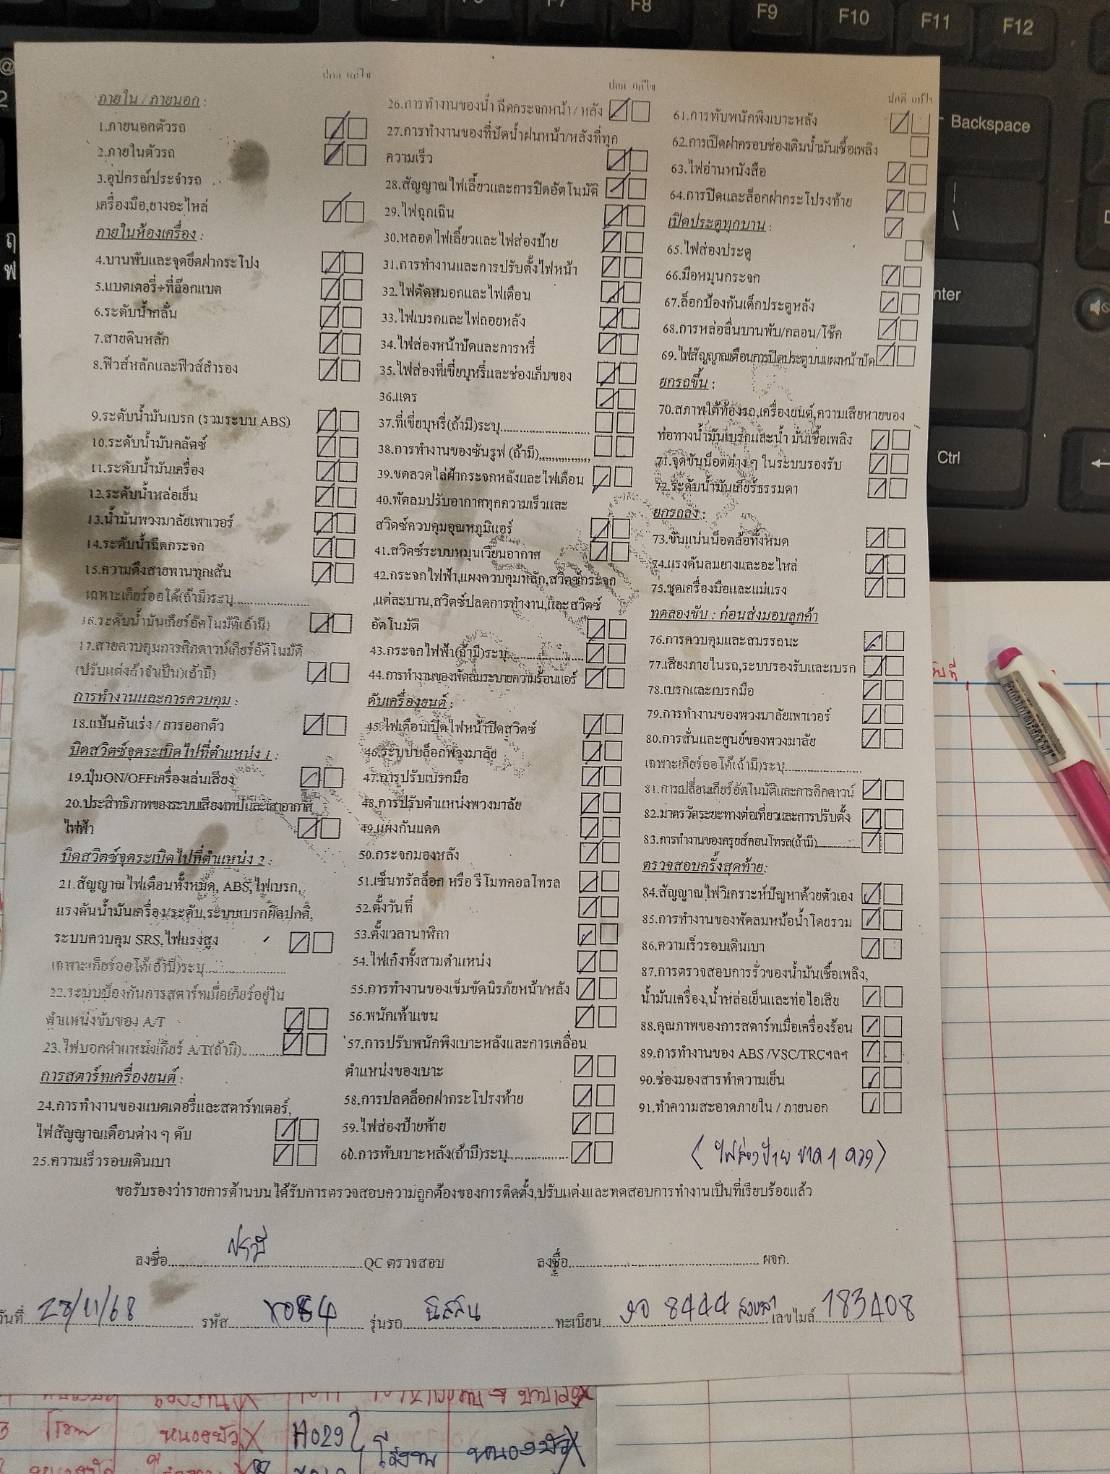 F8
F9
F10
F11
F12
Backspace
Ctrl
ภายใน / ภายนอก :
1.ภายนอกตัวรถ
2.ภายในตัวรถ
3.อุปกรณ์ประจำรถ
เครื่องมือ,ยางอะไหล่
ภายในห้องเครื่อง :
4.บานพับและจุดยึดฝากระโปง
5.แบตเตอรี่+ที่ล็อกแบต
6.ระดับน้ำกลั่น
7.สายดินหลัก
8.ฟิวส์หลักและฟิวส์สำรอง
9.ระดับน้ำมันเบรก (รวมระบบ ABS)
10.ระดับน้ำมันคลัตช์
11.ระดับน้ำมันเครื่อง
12.ระดับน้ำหล่อเย็น
13.น้ำมันพวงมาลัยเพาเวอร์
14.ระดับน้ำฉีดกระจก
15.ความตึงสายพานทุกเส้น
เฉพาะเกียร์ออโต้(ถ้ามี)ระบุ
16.ระดับน้ำมันเกียร์อัตโนมัติ(ถ้ามี)
17.สายควบคุมการคิกดาวน์เกียร์อัตโนมัติ
(ปรับแต่งถ้าจำเป็น)(ถ้ามี)
การทำงานและการควบคุม :
18.แป้นคันเร่ง / การออกตัว
บิดสวิตซ์จุดระเบิดไปที่ตำแหน่ง 1 :
19.ปุ่มON/OFFเครื่องเล่นเสียง
20.ประสิทธิภาพของระบบเสียงเทปและเสาอากาศ
ไฟฟ้า
บิดสวิตซ์จุดระเบิดไปที่ตำแหน่ง 2 :
21.สัญญาณไฟเตือนทั้งหมด, ABS, ไฟเบรก,
แรงดันน้ำมันเครื่อง/ระดับ,ระบบเบรกผิดปกติ,
ระบบควบคุม SRS, ไฟแรงสูง
เฉพาะเกียร์ออโต้(ถ้ามี)ระบุ
22.ระบบป้องกันการสตาร์ทเมื่อเกียร์อยู่ใน
ตำแหน่งขับของ A/T
23.ไฟบอกตำแหน่งเกียร์ A/T(ถ้ามี)
การสตาร์ทเครื่องยนต์ :
24.การทำงานของแบตเตอรี่และสตาร์ทเตอร์,
ไฟสัญญาณเตือนต่าง ๆ ดับ
25.ความเร็วรอบเดินเบา
26.การทำงานของน้ำฉีดกระจกหน้า / หลัง
27.การทำงานของที่ปัดน้ำฝนหน้า/หลังที่ทุก
ความเร็ว
28.สัญญาณไฟเลี้ยวและการปิดอัตโนมัติ
29.ไฟฉุกเฉิน
30.หลอดไฟเลี้ยวและไฟส่องป้าย
31.การทำงานและการปรับตั้งไฟหน้า
32.ไฟตัดหมอกและไฟเตือน
33.ไฟเบรกและไฟถอยหลัง
34.ไฟส่องหน้าปัดและการหรี่
35.ไฟส่องที่เขี่ยบุหรี่และช่องเก็บของ
36.แตร
37.ที่เขี่ยบุหรี่(ถ้ามี)ระบุ
38.การทำงานของซันรูฟ (ถ้ามี)
39.ขดลวดไล่ฝ้ากระจกหลังและไฟเตือน
40.พัดลมปรับอากาศทุกความเร็วและ
สวิตซ์ควบคุมอุณหภูมิแอร์
41.สวิตซ์ระบบหมุนเวียนอากาศ
42.กระจกไฟฟ้า,แผงควบคุมหลัก,สวิตซ์กระจก
,แต่ละบาน,สวิตซ์ปลดการทำงาน,และสวิตซ์
อัตโนมัติ
43.กระจกไฟฟ้า(ถ้ามี)ระบุ
44.การทำงานของพัดลมระบายความร้อนแอร์
ดับเครื่องยนต์ :
45.ไฟเตือนเปิดไฟหน้าปิดสวิตซ์
46.ระบบปลล็อกพวงมาลัย
47.การปรับเบรกมือ
48.การปรับตำแหน่งพวงมาลัย
49.แผงกันแดด
50.กระจกมองหลัง
51.เซ็นทรัลล็อก หรือ รีโมทคอลโทรล
52.ตั้งวันที่
53.ตั้งเวลานาฬิกา
54.ไฟเก๋งทั้งสามตำแหน่ง
55.การทำงานของเข็มขัดนิรภัยหน้า/หลัง
56.พนักเท้าแขน
57.การปรับพนักพิงเบาะหลังและการเคลื่อน
ตำแหน่งของเบาะ
58.การปลดล็อกฝากระโปรงท้าย
59.ไฟส่องป้ายท้าย
60.การพับเบาะหลัง(ถ้ามี)ระบุ
61.การทับพนักพิงเบาะหลัง
62.การเปิดฝาครอบช่องเติมน้ำมันเชื้อเพลิง
63.ไฟอ่านหนังสือ
64.การปิดและล็อกฝากระโปรงท้าย
เปิดประตูทุกบาน :
65.ไฟส่องประตู
66.มือหมุนกระจก
67.ล็อกป้องกันเด็กประตูหลัง
68.การหล่อลื่นบานพับ/กลอน/โช๊ค
69.ไฟสัญญาณเตือนการปิดประตูบนแผงหน้าปัด
ยกรถขึ้น :
70.สภาพใต้ท้องรถ,เครื่องยนต์,ความเสียหายของ
ท่อทางน้ำมันเบรกและน้ำมันเชื้อเพลิง
71.จุดขันน็อตต่าง ๆ ในระบบรองรับ
72.ระดับน้ำมันเกียร์ธรรมดา
ยกรถลง :
73.ขันแน่นน็อตล้อทั้งหมด
74.แรงดันลมยางและอะไหล่
75.ชุดเครื่องมือและแม่แรง
ทดลองขับ : ก่อนส่งมอบลูกค้า
76.การควบคุมและสมรรถนะ
77.เสียงภายในรถ,ระบบรองรับและเบรก
78.เบรกและเบรกมือ
79.การทำงานของพวงมาลัยเพาเวอร์
80.การสั่นและศูนย์ของพวงมาลัย
เฉพาะเกียร์ออโต้(ถ้ามี)ระบุ
81.การเปลี่ยนเกียร์อัตโนมัติและการคิกดาวน์
82.มาตรวัดระยะทางต่อเที่ยวและการปรับตั้ง
83.การทำงานของครูซส์คอนโทรล(ถ้ามี)
ตรวจสอบครั้งสุดท้าย:
84.สัญญาณไฟวิเคราะห์ปัญหาด้วยตัวเอง
85.การทำงานของพัดลมหม้อน้ำโดยรวม
86.ความเร็วรอบเดินเบา
87.การตรวจสอบการรั่วของน้ำมันเชื้อเพลิง,
น้ำมันเครื่อง,น้ำหล่อเย็นและท่อไอเสีย
88.คุณภาพของการสตาร์ทเมื่อเครื่องร้อน
89.การทำงานของ ABS/VSC/TRCฯลฯ
90.ช่องมองสารทำความเย็น
91.ทำความสะอาดภายใน / ภายนอก
(ไฟส่องป้าย ขาด 1 ดวง)
ขอรับรองว่ารายการด้านบนได้รับการตรวจสอบความถูกต้องของการติดตั้ง,ปรับแต่งและทดสอบการทำงานเป็นที่เรียบร้อยแล้ว
ลงชื่อ QC ตรวจสอบ ลงชื่อ ผจก.
วันที่ 28/11/68 รหัส รุ่นรถ นิสสัน ทะเบียน 8444 สงขลา เลขไมล์ 183408
H029
หนองบัว